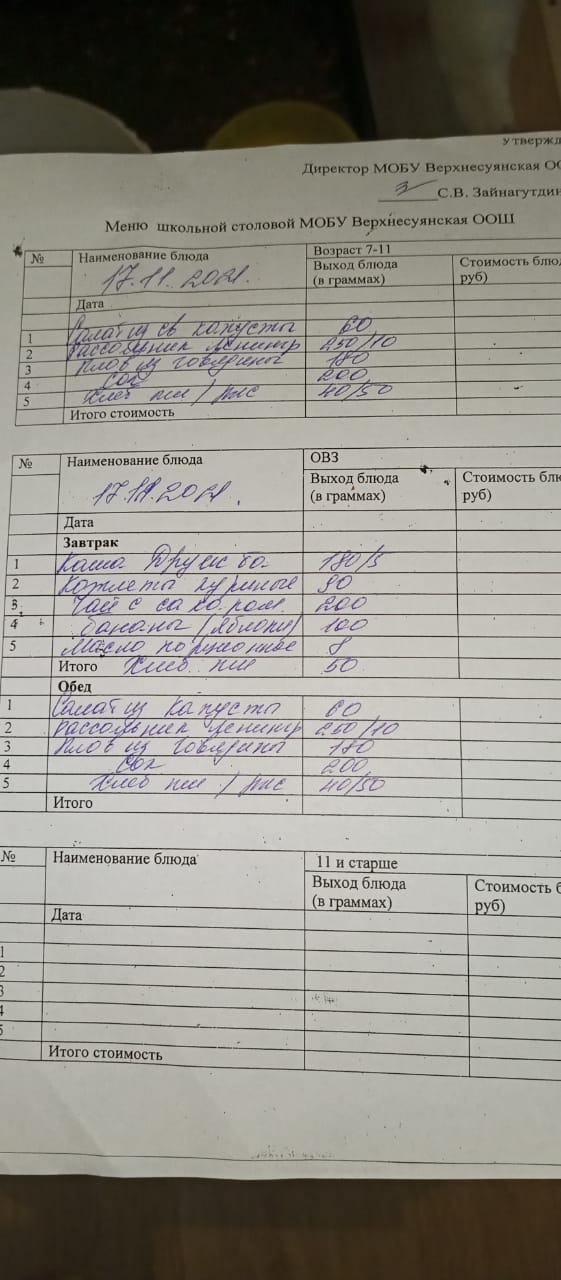 Утвержд
Директор МОБУ Верхнесуянская ОО
С.В. Зайнагутдин
Меню школьной столовой МОБУ Верхнесуянская ООШ
№ Наименование блюда Возраст 7-11
17.11.2021. Выход блюда (в граммах) Стоимость блюд руб)
Дата
1 Салат из св капусты 60
2 Рассольник ленингр 250/10
3 Плов из говядины 180
4 Сок 200
5 Хлеб пш / рж 40/50
Итого стоимость
№ Наименование блюда ОВЗ
17.11.2021. Выход блюда (в граммах) Стоимость блю руб)
Дата
Завтрак
1 Каша Дружба 180/5
2 Котлета куриные 90
3 Чай с сахаром 200
4 бананы (яблоки) 100
5 Масло порционное 8
Итого Хлеб пш 50
Обед
1 Салат из капусты 60
2 Рассольник ленингр 250/10
3 Плов из говядины 180
4 Сок 200
5 Хлеб пш / рж 40/50
Итого
№ Наименование блюда 11 и старше
Выход блюда (в граммах) Стоимость б руб)
Дата
1
2
3
4
5
Итого стоимость